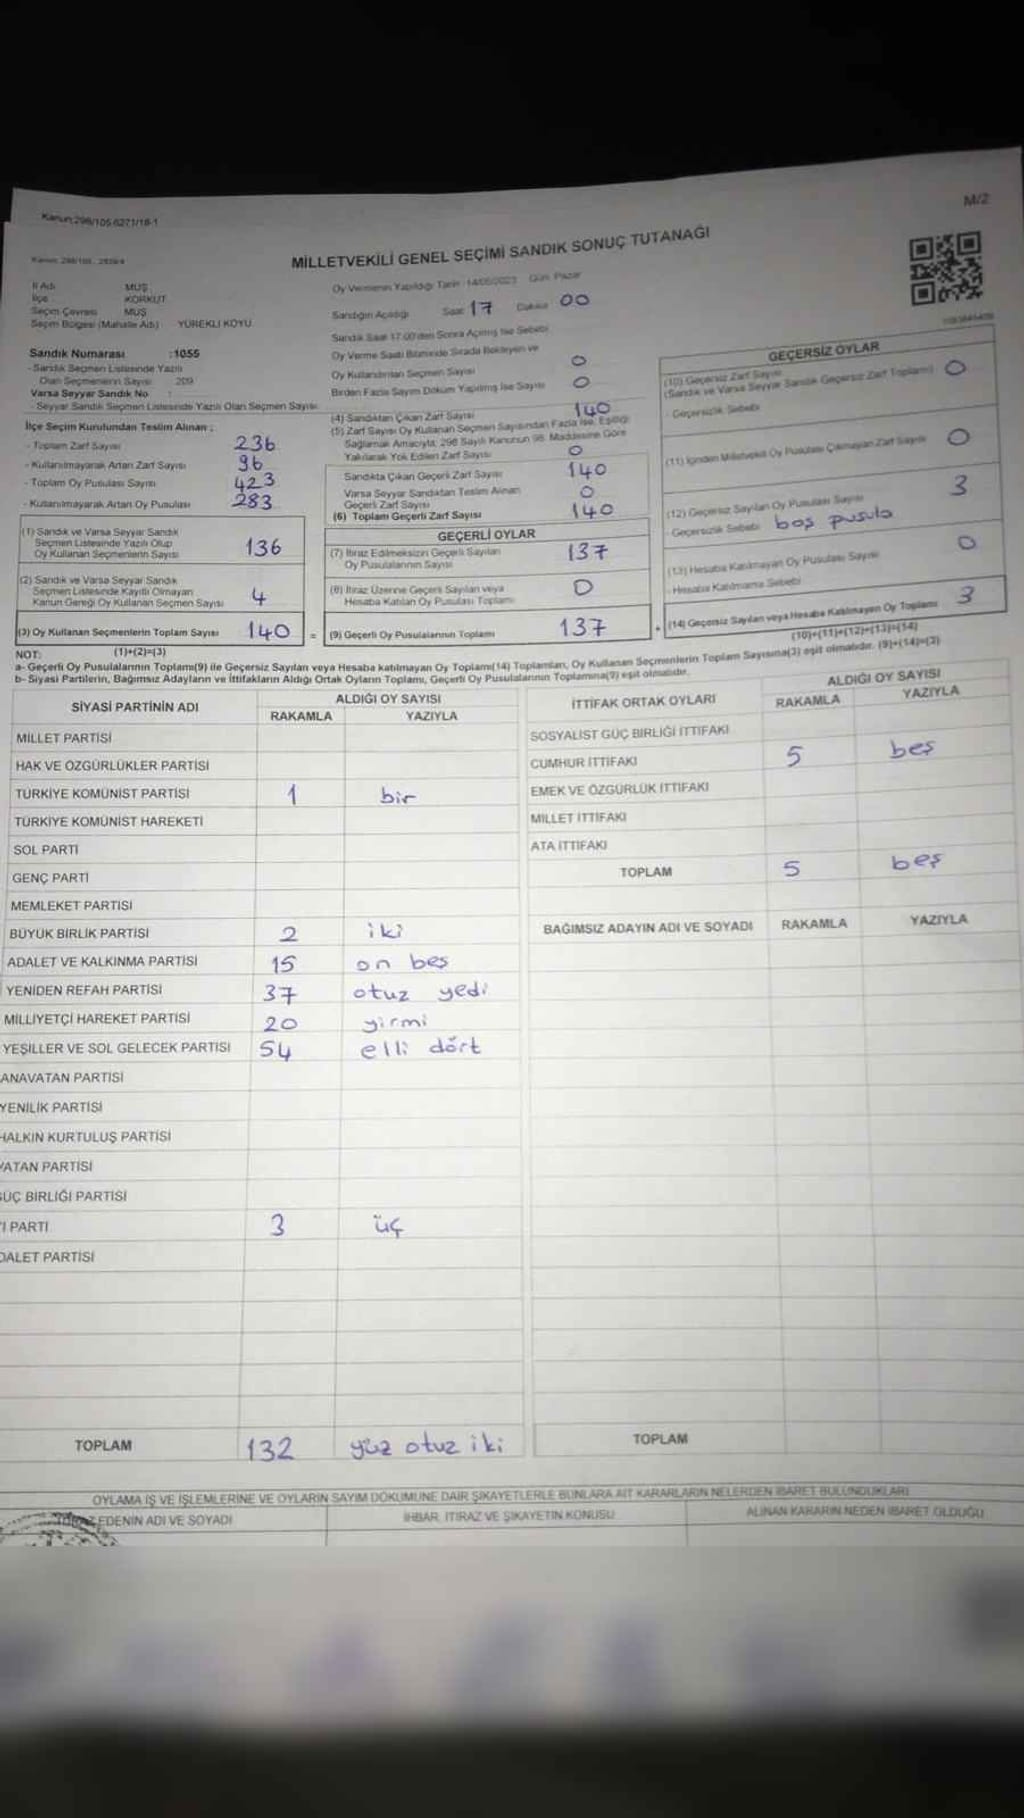 Kanun:298/105.6271/18-1
M/2
MİLLETVEKİLİ GENEL SEÇİMİ SANDIK SONUÇ TUTANAĞI
İl Adı MUŞ
İlçe KORKUT
Seçim Çevresi MUŞ
Seçim Bölgesi (Mahalle Adı) YÜREKLİ KÖYÜ
Sandık Numarası :1055
- Sandık Seçmen Listesinde Yazılı
Olan Seçmenlerin Sayısı 209
Varsa Seyyar Sandık No :
- Seyyar Sandık Seçmen Listesinde Yazılı Olan Seçmen Sayısı
İlçe Seçim Kurulundan Teslim Alınan :
- Toplam Zarf Sayısı 236
- Kullanılmayarak Artan Zarf Sayısı 96
- Toplam Oy Pusulası Sayısı 423
- Kullanılmayarak Artan Oy Pusulası 283
(1) Sandık ve Varsa Seyyar Sandık
Seçmen Listesinde Yazılı Olup
Oy Kullanan Seçmenlerin Sayısı 136
(2) Sandık ve Varsa Seyyar Sandık
Seçmen Listesinde Kayıtlı Olmayan
Kanun Gereği Oy Kullanan Seçmen Sayısı 4
(3) Oy Kullanan Seçmenlerin Toplam Sayısı 140 =
(1)+(2)=(3)
Oy Vermenin Yapıldığı Tarih 14/05/2023 Gün Pazar
Sandığın Açıldığı Saat 17 Dakika 00
Sandık Saat 17.00'den Sonra Açılmış İse Sebebi
Oy Verme Saati Bitiminde Sırada Bekleyen ve
Oy Kullandırılan Seçmen Sayısı 0
Birden Fazla Sayım Döküm Yapılmış İse Sayısı 0
(4) Sandıktan Çıkan Zarf Sayısı 140
(5) Zarf Sayısı Oy Kullanan Seçmen Sayısından Fazla İse, Eşitliği
Sağlamak Amacıyla, 298 Sayılı Kanunun 98. Maddesine Göre
Yakılarak Yok Edilen Zarf Sayısı 0
Sandıkta Çıkan Geçerli Zarf Sayısı 140
Varsa Seyyar Sandıktan Teslim Alınan
Geçerli Zarf Sayısı 0
(6) Toplam Geçerli Zarf Sayısı 140
GEÇERLİ OYLAR
(7) İtiraz Edilmeksizin Geçerli Sayılan
Oy Pusulalarının Sayısı 137
(8) İtiraz Üzerine Geçerli Sayılan veya
Hesaba Katılan Oy Pusulası Toplamı 0
(9) Geçerli Oy Pusulalarının Toplamı 137 +
GEÇERSİZ OYLAR
(10) Geçersiz Zarf Sayısı
(Sandık ve Varsa Seyyar Sandık Geçersiz Zarf Toplamı) 0
- Geçersizlik Sebebi
(11) İçinden Milletvekili Oy Pusulası Çıkmayan Zarf Sayısı 0
(12) Geçersiz Sayılan Oy Pusulası Sayısı 3
- Geçersizlik Sebebi boş pusula
(13) Hesaba Katılmayan Oy Pusulası Sayısı 0
- Hesaba Katılmama Sebebi
(14) Geçersiz Sayılan veya Hesaba Katılmayan Oy Toplamı 3
(10)+(11)+(12)+(13)=(14)
NOT:
a- Geçerli Oy Pusulalarının Toplamı(9) ile Geçersiz Sayılan veya Hesaba katılmayan Oy Toplamı(14) Toplamları, Oy Kullanan Seçmenlerin Toplam Sayısına(3) eşit olmalıdır. (9)+(14)=(3)
b- Siyasi Partilerin, Bağımsız Adayların ve İttifakların Aldığı Ortak Oyların Toplamı, Geçerli Oy Pusulalarının Toplamına(9) eşit olmalıdır.
SİYASİ PARTİNİN ADI ALDIĞI OY SAYISI
RAKAMLA YAZIYLA
MİLLET PARTİSİ
HAK VE ÖZGÜRLÜKLER PARTİSİ
TÜRKİYE KOMÜNİST PARTİSİ 1 bir
TÜRKİYE KOMÜNİST HAREKETİ
SOL PARTİ
GENÇ PARTİ
MEMLEKET PARTİSİ
BÜYÜK BİRLİK PARTİSİ 2 iki
ADALET VE KALKINMA PARTİSİ 15 on beş
YENİDEN REFAH PARTİSİ 37 otuz yedi
MİLLİYETÇİ HAREKET PARTİSİ 20 yirmi
YEŞİLLER VE SOL GELECEK PARTİSİ 54 elli dört
ANAVATAN PARTİSİ
YENİLİK PARTİSİ
HALKIN KURTULUŞ PARTİSİ
VATAN PARTİSİ
GÜÇ BİRLİĞİ PARTİSİ
İ PARTİ 3 üç
DALET PARTİSİ
TOPLAM 132 yüz otuz iki
İTTİFAK ORTAK OYLARI ALDIĞI OY SAYISI
RAKAMLA YAZIYLA
SOSYALİST GÜÇ BİRLİĞİ İTTİFAKI
CUMHUR İTTİFAKI 5 beş
EMEK VE ÖZGÜRLÜK İTTİFAKI
MİLLET İTTİFAKI
ATA İTTİFAKI
TOPLAM 5 beş
BAĞIMSIZ ADAYIN ADI VE SOYADI RAKAMLA YAZIYLA
TOPLAM
OYLAMA İŞ VE İŞLEMLERİNE VE OYLARIN SAYIM DÖKÜMÜNE DAİR ŞİKAYETLERLE BUNLARA AİT KARARLARIN NELERDEN İBARET BULUNDUKLARI
EDENİN ADI VE SOYADI
İHBAR, İTİRAZ VE ŞİKAYETİN KONUSU
ALINAN KARARIN NEDEN İBARET OLDUĞU